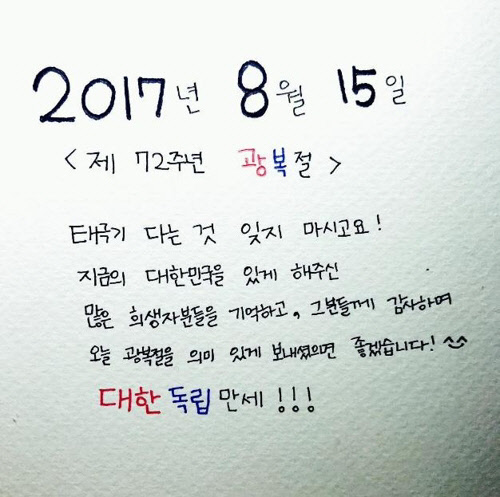 2017년 8월 15일
< 제 72주년 광복절 >
태극기 다는 것 잊지 마시고요!
지금의 대한민국을 있게 해주신
많은 희생자분들을 기억하고, 그분들께 감사하며
오늘 광복절을 의미 있게 보내셨으면 좋겠습니다! ^^
대한독립만세!!!